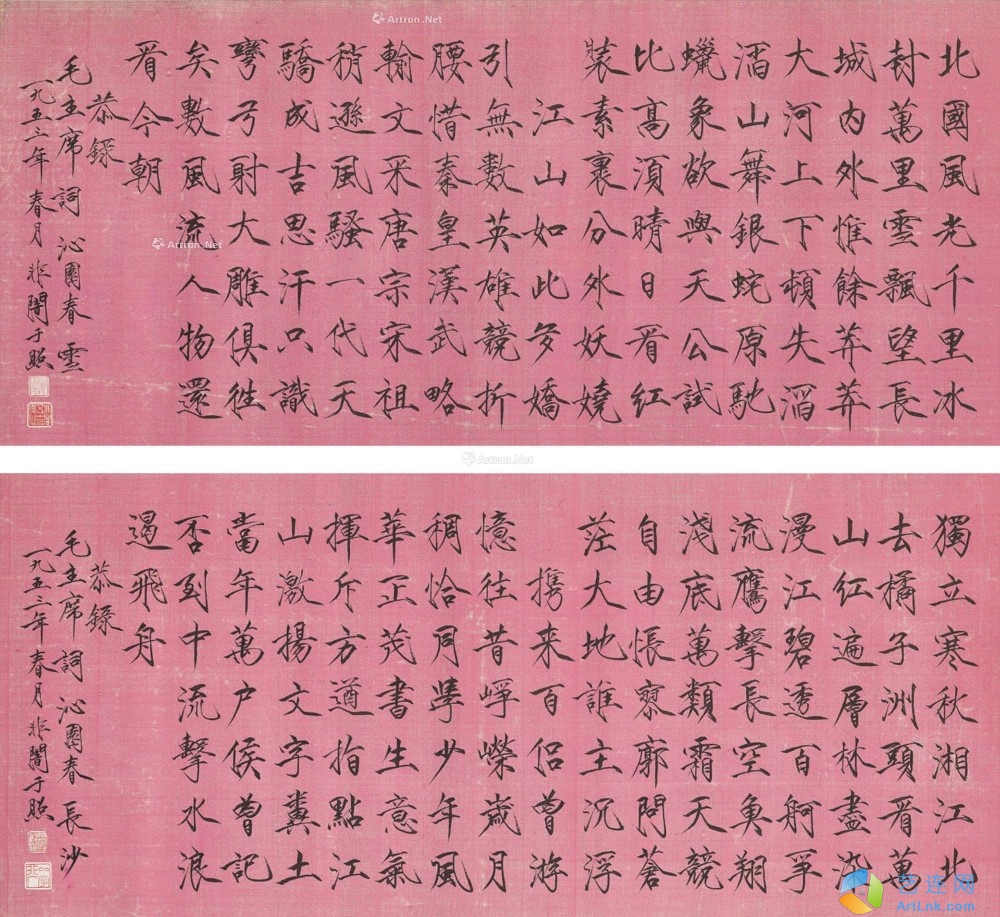 北國風光千里冰
封萬里雲飄望長
城内外惟餘莽莽
大河上下頓失滔
滔山舞銀蛇原馳
蠟象欲與天公試
比髙須晴日看紅
裝素裹分外妖嬈
江山如此多嬌
引無數英雄競折
腰惜秦皇漢武略
輸文采唐宗宋祖
稍遜風騷一代天
驕成吉思汗只識
彎弓射大雕俱往
矣數風流人物還
看今朝
恭錄
毛主席詞 沁園春 雲
一九五三年春月非闇于照
Artron.Net
Artron.Net
Artron.Net
獨立寒秋湘江北
去橘子洲頭看萬
山紅遍層林盡染
漫江碧透百舸爭
流鷹擊長空魚翔
淺底萬類霜天競
自由悵寥廓問蒼
茫大地誰主沉浮
携来百侣曾游
憶往昔崢嶸歲月
稠恰同學少年風
華正茂書生意氣
揮斥方遒指點江
山激揚文字糞土
當年萬户侯曾記
否到中流擊水浪
遏飛舟
恭錄
毛主席詞 沁園春 長沙
一九五三年春月非闇于照
ArtLnk.com